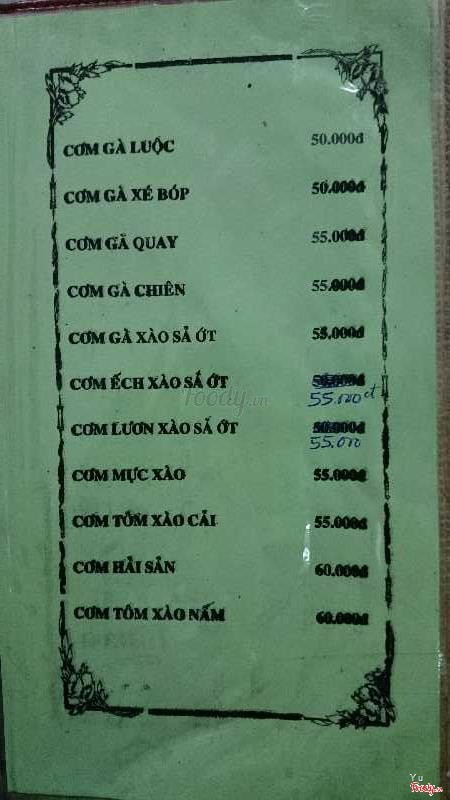 CƠM GÀ LUỘC 50.000đ
CƠM GÀ XÉ BÓP 50.000đ
CƠM GÀ QUAY 55.000đ
CƠM GÀ CHIÊN 55.000đ
CƠM GÀ XÀO SẢ ỚT 55.000đ
CƠM ẾCH XÀO SẢ ỚT 50.000đ
55.000đ
Foody.vn
CƠM LƯƠN XÀO SẢ ỚT 50.000đ
55.000
CƠM MỰC XÀO 55.000đ
CƠM TÔM XÀO CẢI 55.000đ
CƠM HẢI SẢN 60.000đ
CƠM TÔM XÀO NẤM 60.000đ
Yu
Foody.vn